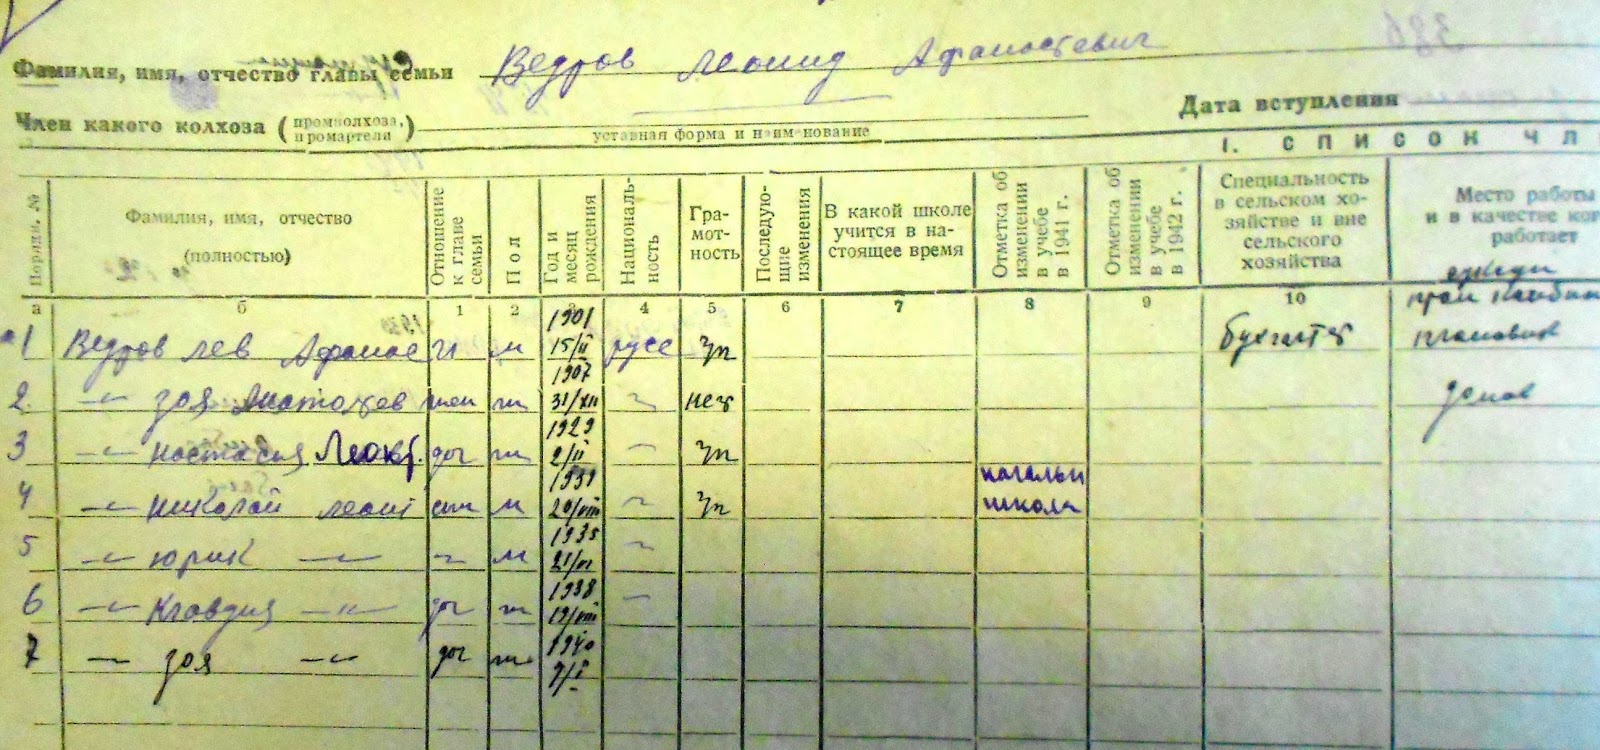 Фамилия, имя, отчество главы семьи Ведров Леонид Афанасьевич
Член какого колхоза (промколхоза, промартели)
уставная форма и наименование
Дата вступления
I. СПИСОК ЧЛ
Порядк. №
Фамилия, имя, отчество (полностью)
Отношение к главе семьи
Пол
Год и месяц рождения
Националь-ность
Гра-мот-ность
Последую-щие изменения
В какой школе учится в на-стоящее время
Отметка об изменении в учебе в 1941 г.
Отметка об изменении в учебе в 1942 г.
Специальность в сельском хо-зяйстве и вне сельского хозяйства
Место работы и в качестве ко работает
а б 1 2 3 4 5 6 7 8 9 10
1 Ведров Лев Афанас м 1901 15/II русс гр бухгалтер плановик
2 Зоя жен ж 1907 31/XII нет домов
3 Настасия доч ж 1929 2/II гр
4 Николай Леонт сын м 20/VIII гр начальн школа
5 Юрик м 1935 21/VI
6 Клавдия доч ж 1938 19/VIII
7 Зоя доч ж 1940